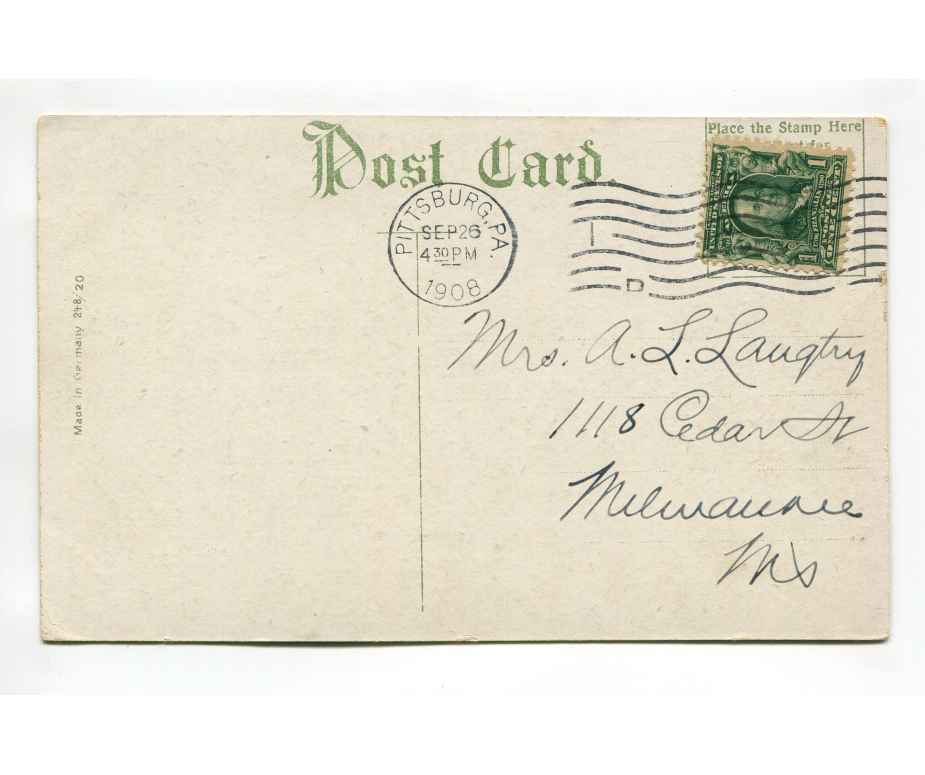 Post Card.
Place the Stamp Here
PITTSBURG, PA.
SEP 26
4 30 PM
1908
D
1 1
Made in Germany 218/20
Mrs. A. L. Langtry
1118 Cedar St
Milwaukee
Wis